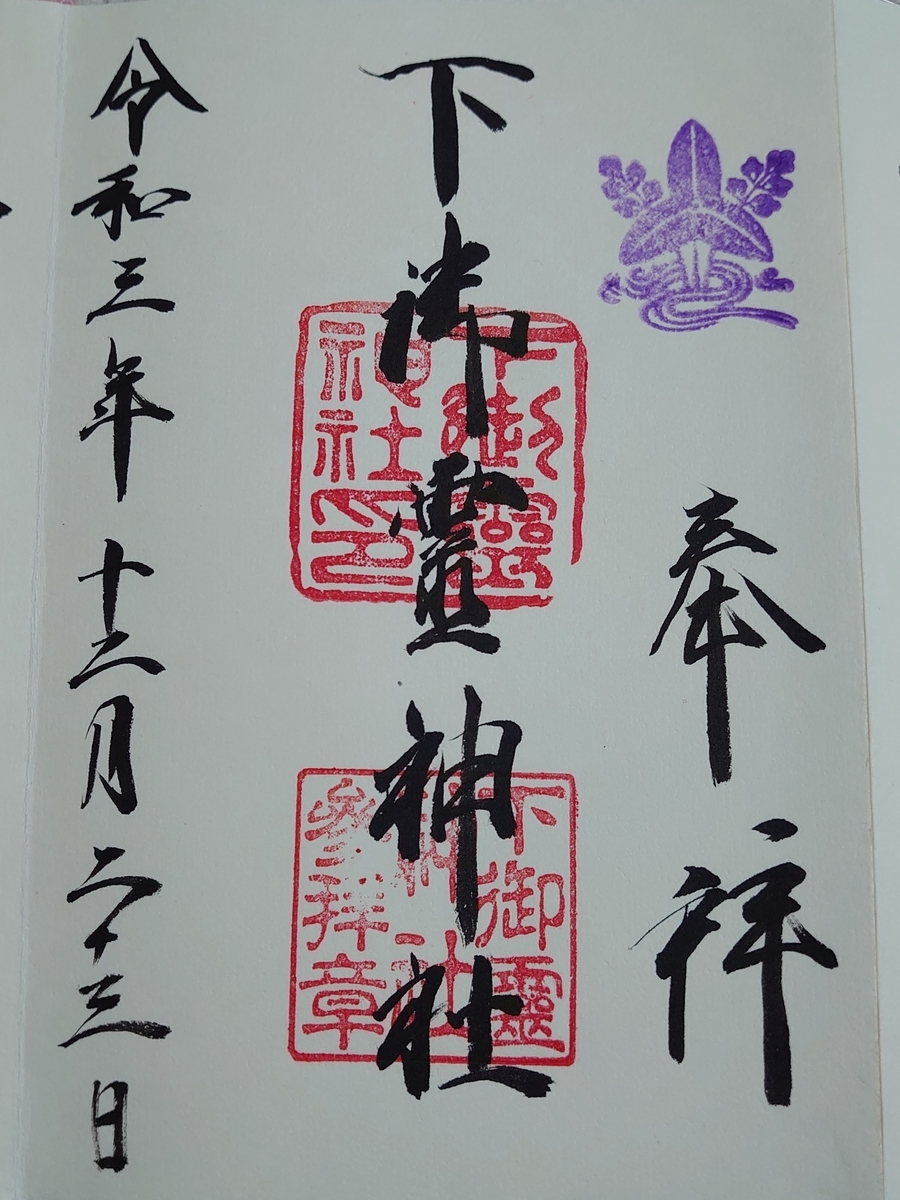 奉拝
下御靈神社
令和三年十二月二十三日
下御靈
神社印
下御靈
神社
参拝章